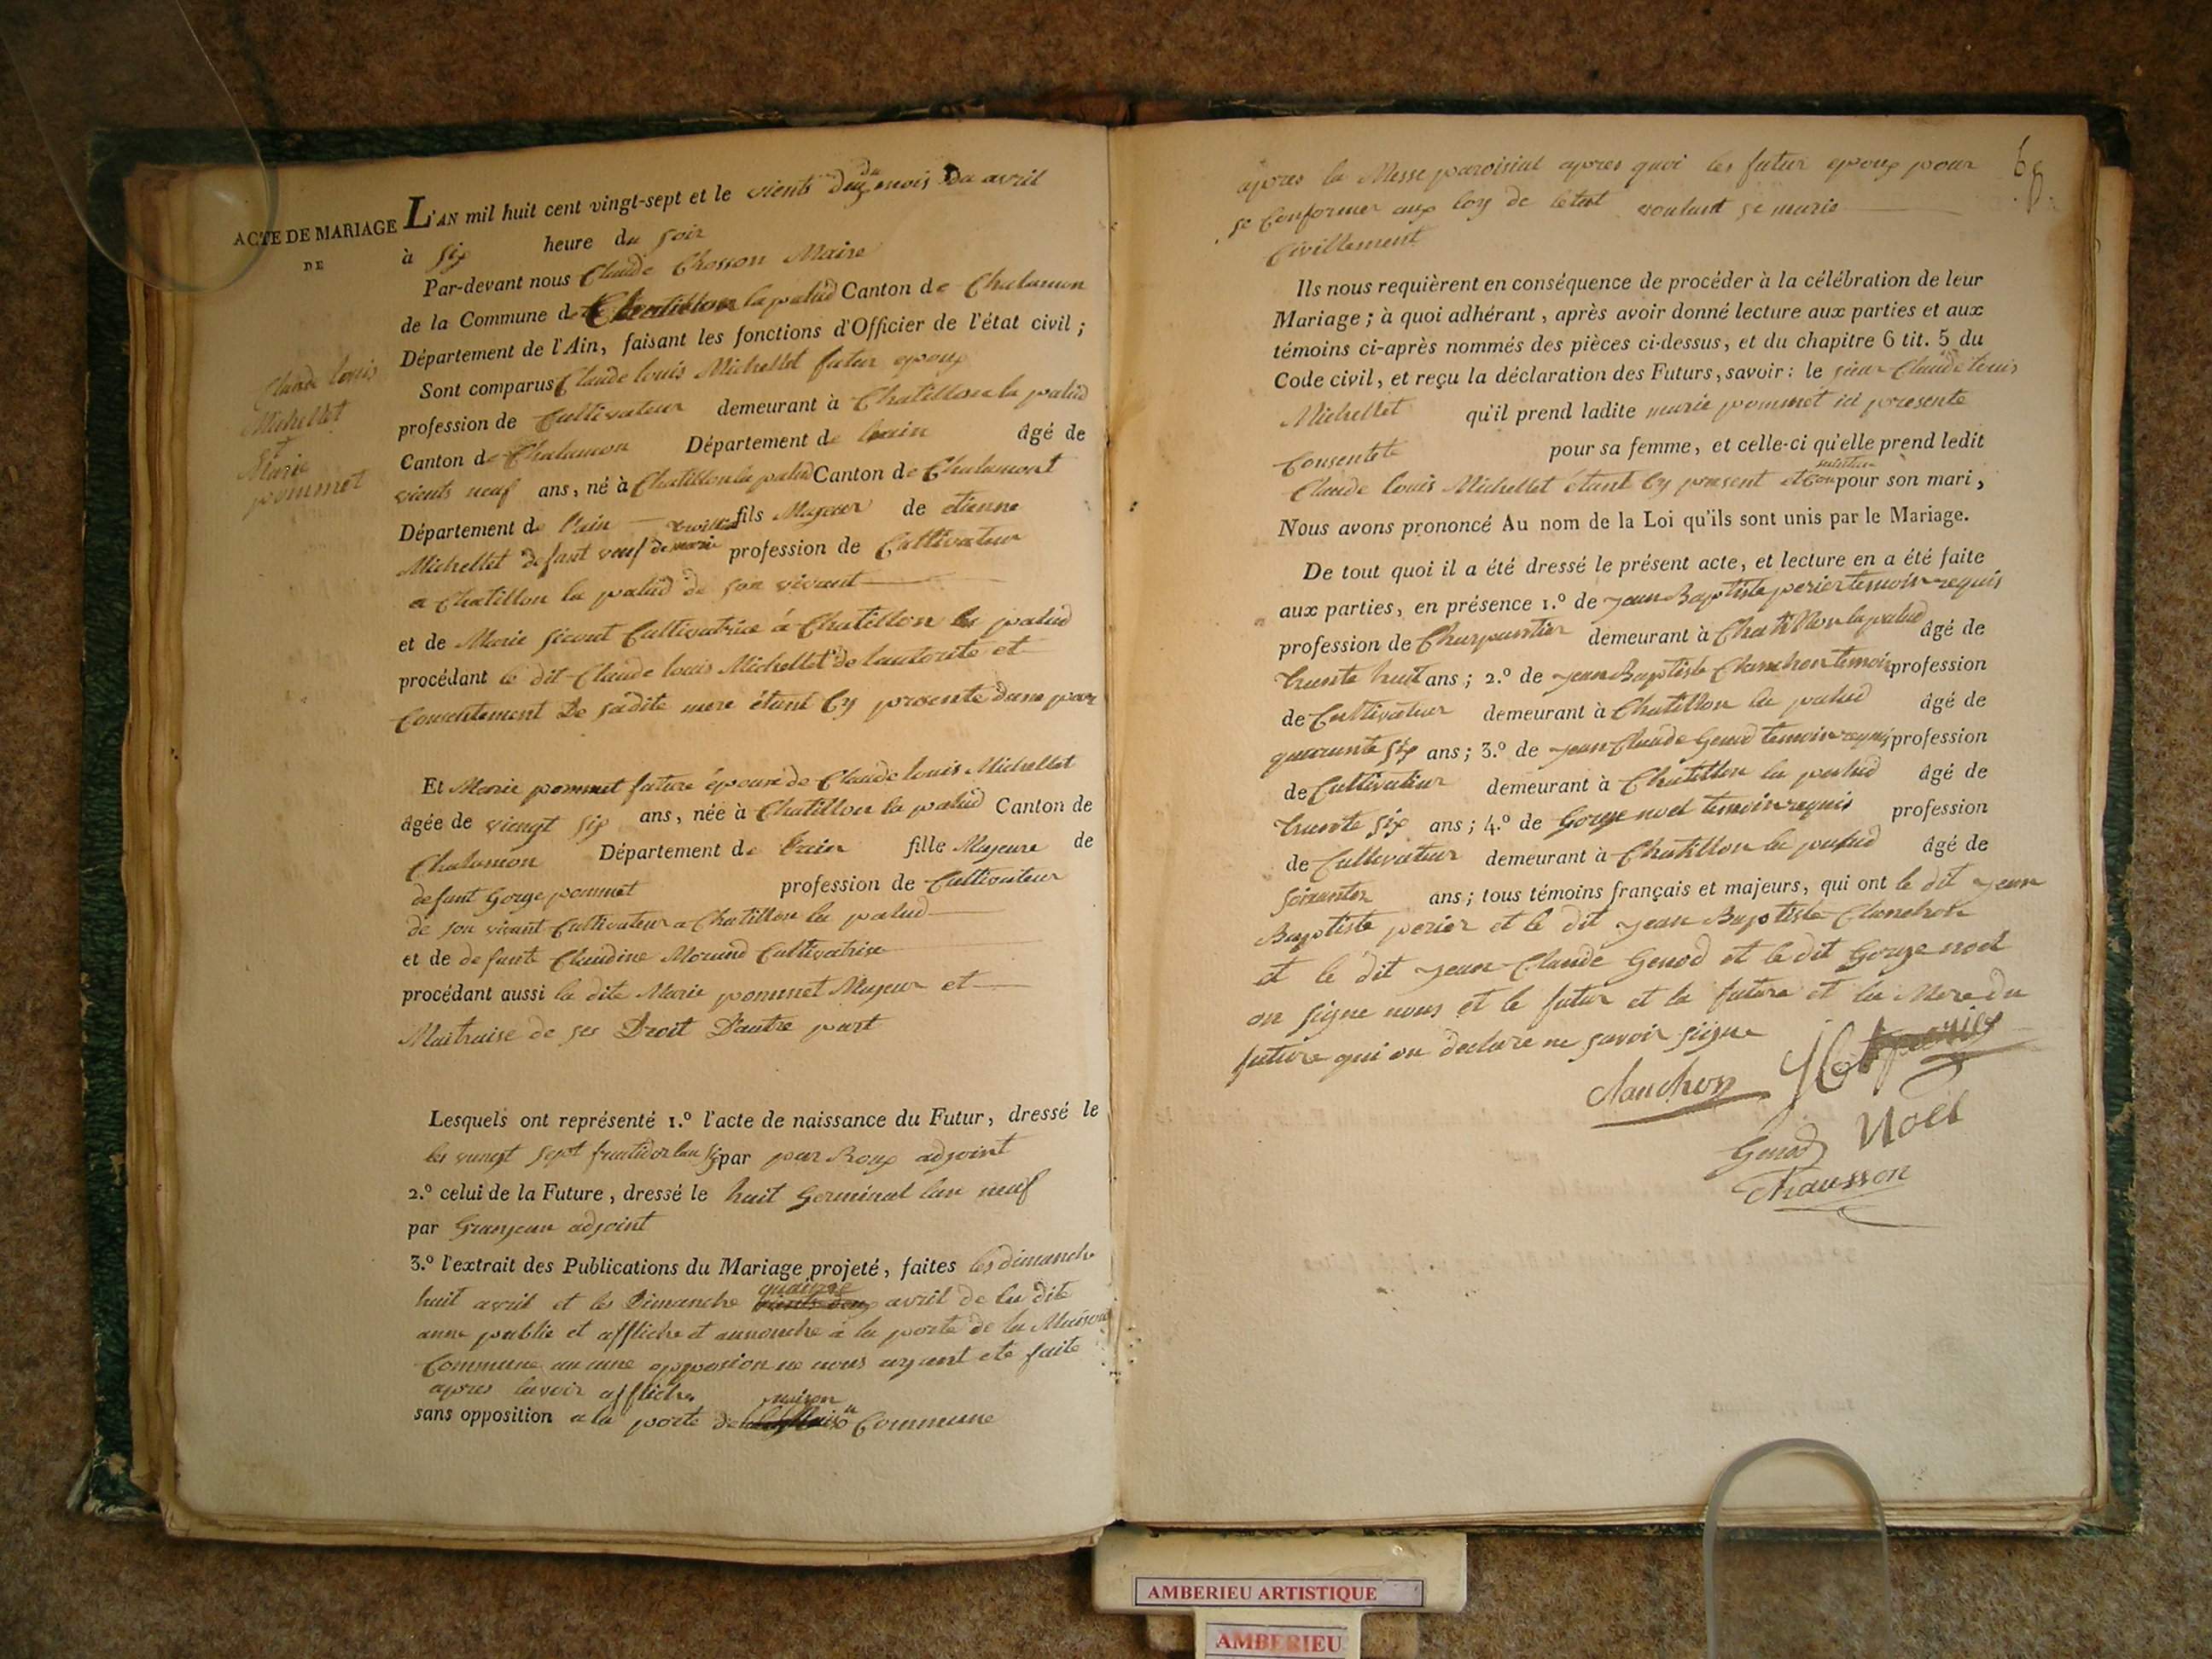 ACTE DE MARIAGE
DE
Claude louis
Michellet
et
Marie
pommet
L'AN mil huit cent vingt-sept et le vients deux du mois Du avril
à six heure du soir
Par-devant nous Claude Chosson Maire
de la Commune de Chatillon la palud Canton de Chalamon
Département de l'Ain, faisant les fonctions d'Officier de l'état civil ;
Sont comparus Claude louis Michellet futur epoux
profession de Cultivateur demeurant à Chatillon la palud
Canton de Chalamon Département de lain âgé de
vients neuf ans, né à Chatillon la palud Canton de Chalamont
Département de l'ain fils Majeur de etienne
Michellet defunt veuf de marie profession de Cultivateur
a Chatillon la palud de son vivant
et de Marie sicout Cultivatrice à Chatillon la palud
procédant le dit Claude louis Michellet de lautorite et
Consentement De sadite mere étant Cy presente dune part
Et Marie pommet future épouse de Claude louis Michellet
âgée de viengt six ans, née à Chatillon la palud Canton de
Chalamon Département de l'ain fille Majeure de
defunt Gorge pommet profession de Cultivateur
de son vivant Cultivateur a Chatillon la palud
et de defunte Claudine Morand Cultivatrice
procédant aussi la dite Marie pommet Majeur et
Maitraise de ses Droit D'autre part
Lesquels ont représenté 1.º l'acte de naissance du Futur, dressé le
les vungt sept fruttidor lan six par par Roux adjoint
2.º celui de la Future, dressé le huit Germinal lan neuf
par Granjean adjoint
3.º l'extrait des Publications du Mariage projeté, faites les dimanche
huit avril et les Dimanche quainze avril de la dite
anne publie et affliche et annonche a la porte de la Maison
Commune aucune opposion ne nous ayant ete faite
apres lavoir affliche
sans opposition a la porte de maison Commune
65.
apres la Messe paroisial apres quoi les futur epoux pour
se Conformer aux loy de letat voulant se marie
Civillement
Ils nous requièrent en conséquence de procéder à la célébration de leur
Mariage ; à quoi adhérant, après avoir donné lecture aux parties et aux
témoins ci-après nommés des pièces ci-dessus, et du chapitre 6 tit. 5 du
Code civil, et reçu la déclaration des Futurs, savoir : le sieur Claude louis
Michellet qu'il prend ladite marie pommet ici presente
Consentete pour sa femme, et celle-ci qu'elle prend ledit
Claude louis Michellet étant Cy present et Con pour son mari,
Nous avons prononcé Au nom de la Loi qu'ils sont unis par le Mariage.
De tout quoi il a été dressé le présent acte, et lecture en a été faite
aux parties, en présence 1.º de jean Baptiste perier temoin requis
profession de Charpentier demeurant à Chatillon la palud âgé de
trente huit ans ; 2.º de jean Baptiste Clanchon temoin profession
de Cultivateur demeurant à Chatillon la palud âgé de
quarante six ans ; 3.º de jean Claude Genod temoin requis profession
de Cultivatiur demeurant à Chatillon la palud âgé de
trente six ans ; 4.º de Gorge noel temoin requis profession
de Cultivateur demeurant à Chatillon la palud âgé de
ans ; tous témoins français et majeurs, qui ont le dit jean
Baptiste perier et le dit jean Baptiste Clanchon
et le dit jean Claude Genod et le dit Gorge noel
on signe nous et le futur et la future et la Mere du
future qui on declare ne savoir signe
Clanchon
Genod Noël
Chausson
AMBERIEU ARTISTIQUE
AMBERIEU